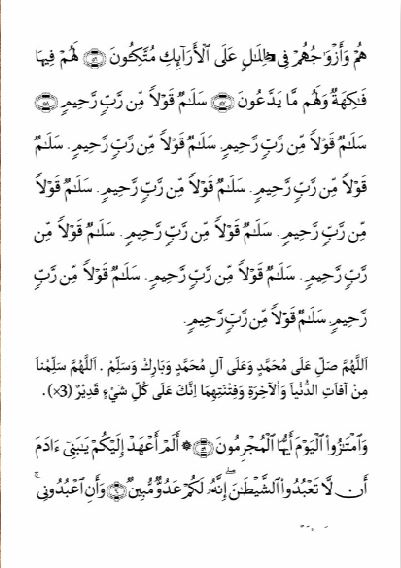 هُمْ وَأَزْوَٰجُهُمْ فِى ظِلَٰلٍ عَلَى ٱلْأَرَآئِكِ مُتَّكِـُٔونَ ۝٥٦ لَهُمْ فِيهَا
فَٰكِهَةٌ وَلَهُم مَّا يَدَّعُونَ ۝٥٧ سَلَٰمٌ قَوْلًا مِّن رَّبٍّ رَّحِيمٍ ۝٥٨
سَلَٰمٌ قَوْلًا مِّن رَّبٍّ رَّحِيمٍ. سَلَٰمٌ قَوْلًا مِّن رَّبٍّ رَّحِيمٍ. سَلَٰمٌ
قَوْلًا مِّن رَّبٍّ رَّحِيمٍ. سَلَٰمٌ قَوْلًا مِّن رَّبٍّ رَّحِيمٍ. سَلَٰمٌ قَوْلًا
مِّن رَّبٍّ رَّحِيمٍ. سَلَٰمٌ قَوْلًا مِّن رَّبٍّ رَّحِيمٍ. سَلَٰمٌ قَوْلًا مِّن
رَّبٍّ رَّحِيمٍ. سَلَٰمٌ قَوْلًا مِّن رَّبٍّ رَّحِيمٍ. سَلَٰمٌ قَوْلًا مِّن رَّبٍّ
رَّحِيمٍ. سَلَٰمٌ قَوْلًا مِّن رَّبٍّ رَّحِيمٍ.
اَللَّهُمَّ صَلِّ عَلَى مُحَمَّدٍ وَعَلَى آلِ مُحَمَّدٍ وَبَارِكْ وَسَلِّمْ . اَللَّهُمَّ سَلِّمْنَا
مِنْ آفَاتِ الدُّنْيَا وَالْآخِرَةِ وَفِتْنَتِهِمَا إِنَّكَ عَلَى كُلِّ شَيْءٍ قَدِيْرٌ (3×) .
وَٱمْتَٰزُوا۟ ٱلْيَوْمَ أَيُّهَا ٱلْمُجْرِمُونَ ۝٥٩ ۞ أَلَمْ أَعْهَدْ إِلَيْكُمْ يَٰبَنِىٓ ءَادَمَ
أَن لَّا تَعْبُدُوا۟ ٱلشَّيْطَٰنَ ۖ إِنَّهُۥ لَكُمْ عَدُوٌّ مُّبِينٌ ۝٦٠ وَأَنِ ٱعْبُدُونِى ۚ